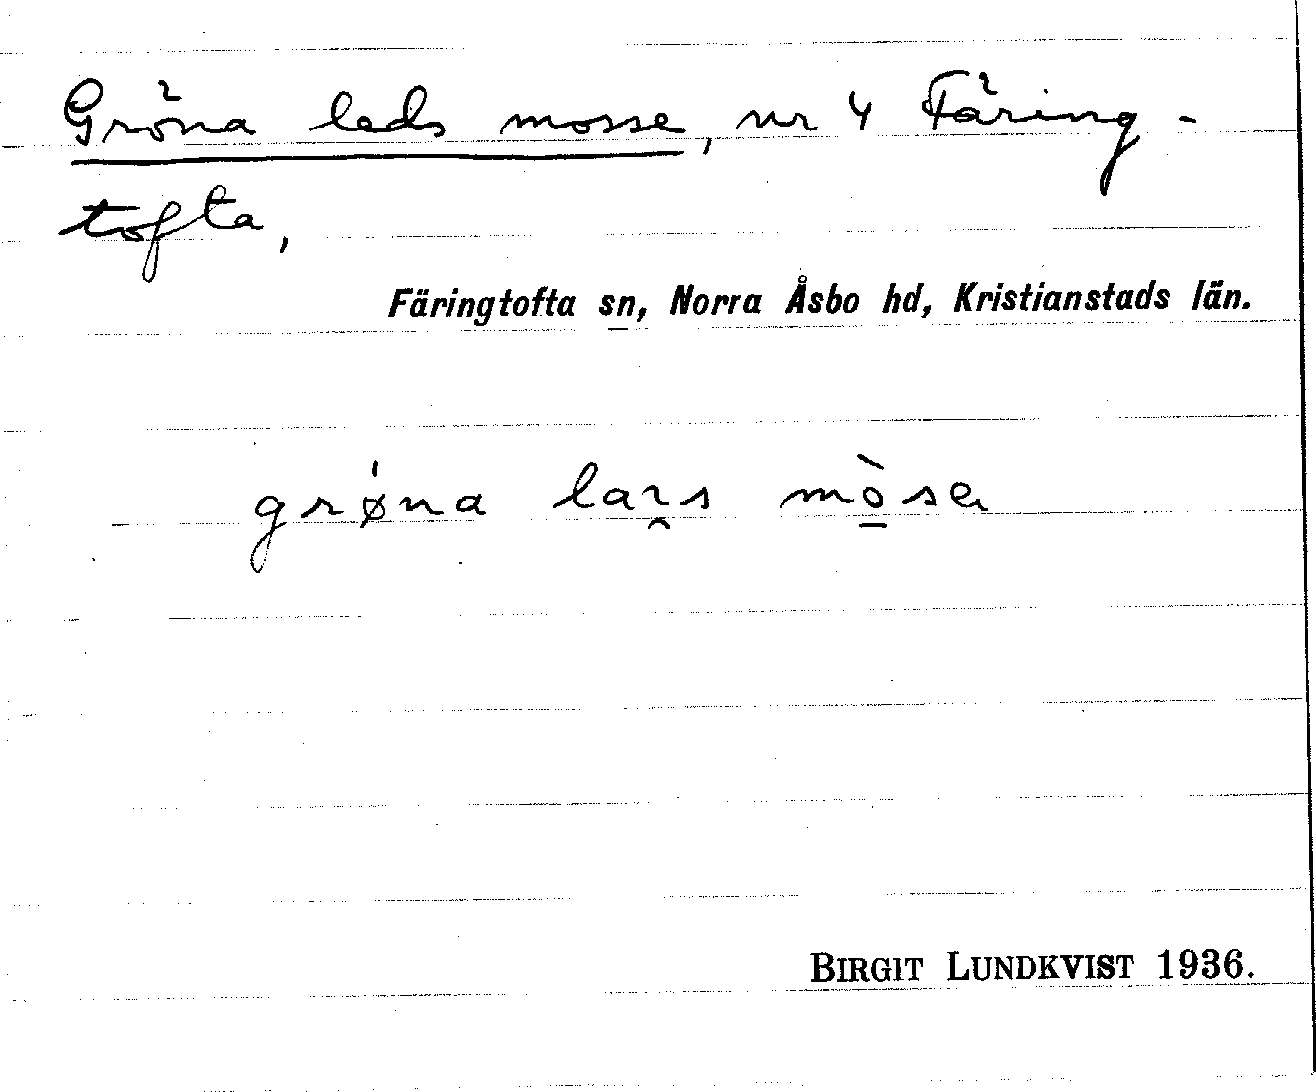 Gröna leds mosse, nr 4 Färing-
tofta,
Färingtofta sn, Norra Åsbo hd, Kristianstads län.
grǿna laı̯s mò̱sa
BIRGIT LUNDKVIST 1936.